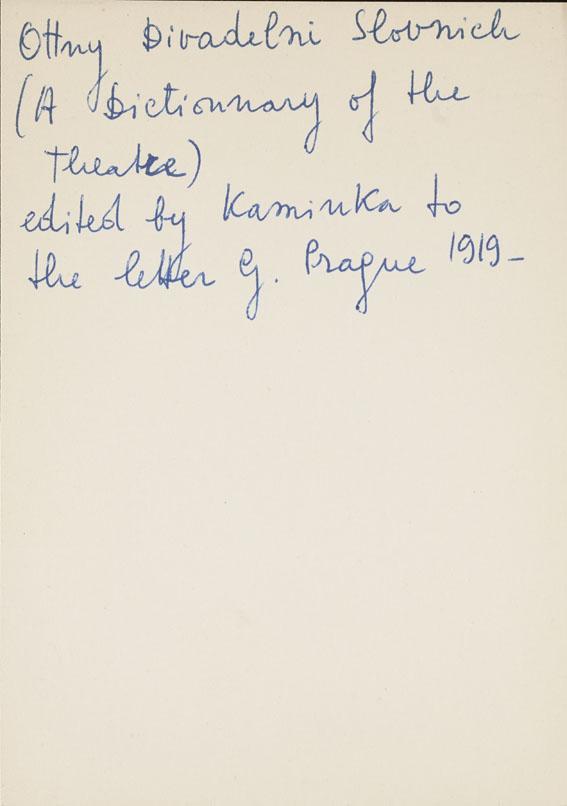 Ottny Divadelni Slovnich
(A Dictionnary of the
Theatre)
edited by Kaminka to
the letter G. Prague 1919-